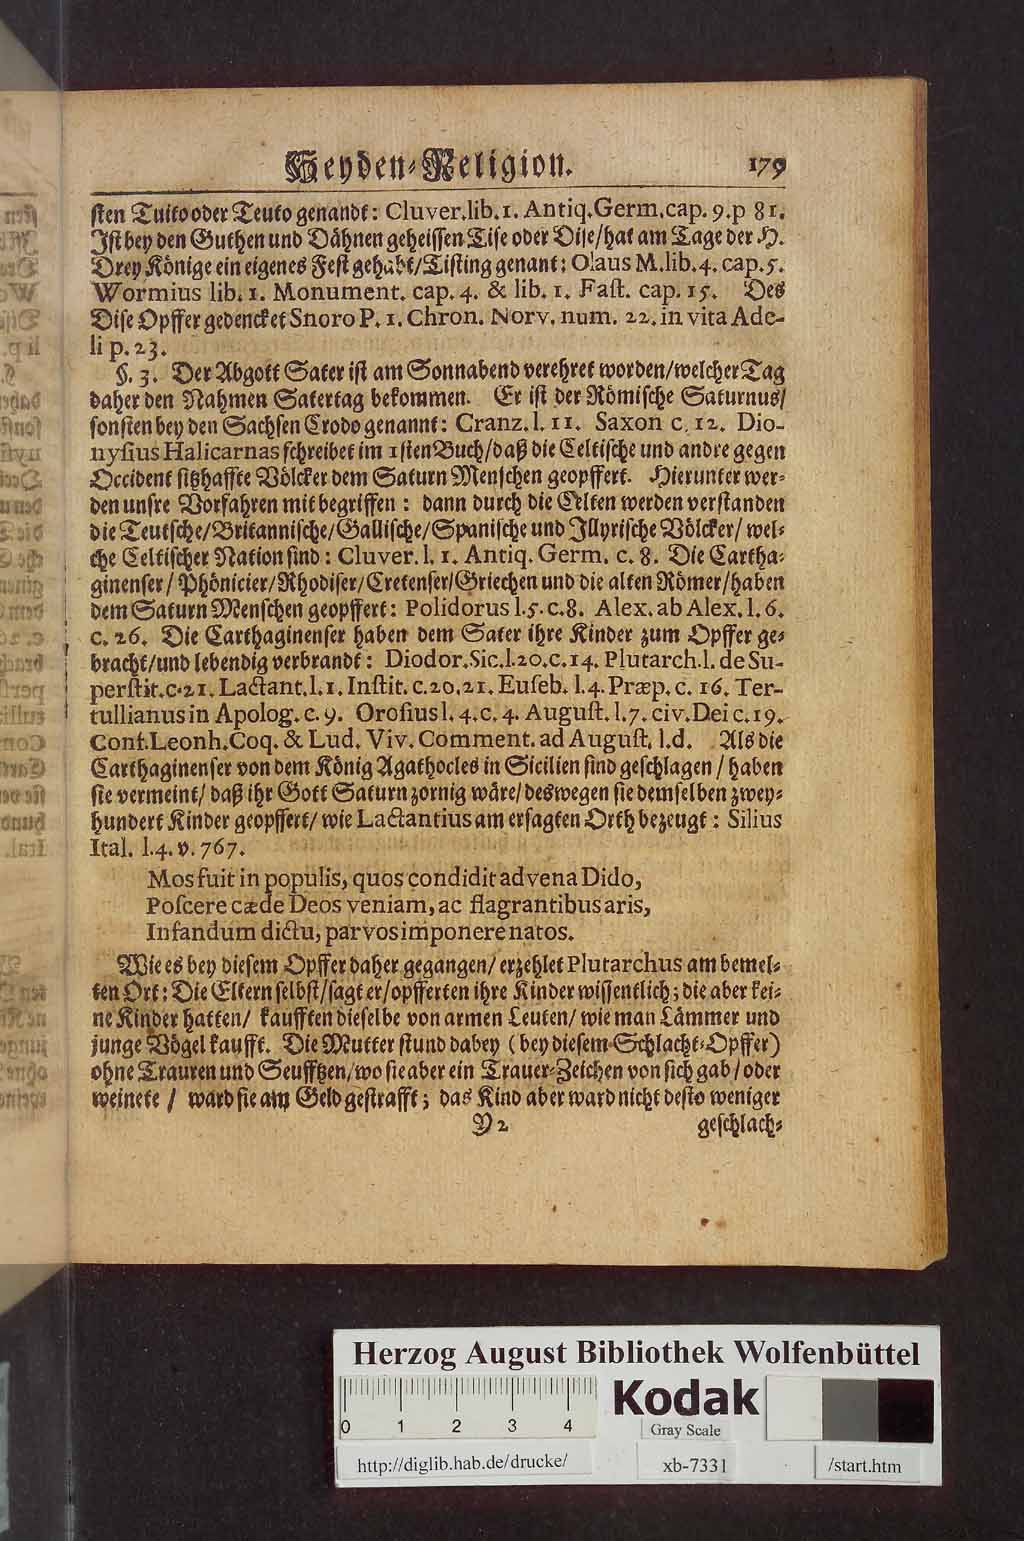 Heyden-Religion. 179
sten Tuito oder Teuto genandt: Cluver. lib. 1. Antiq. Germ. cap. 9. p 81.
Ist bey den Guthen und Dähnen geheissen Tise oder Dise/ hat am Tage der H.
Drey Könige ein eigenes Fest gehabt/ Tisting genant: Olaus M. lib. 4. cap. 5.
Wormius lib. 1. Monument. cap. 4. & lib. 1. Fast. cap. 15. Des
Dise Opffer gedencket Snoro P. 1. Chron. Norv. num. 22. in vita Ade-
li p. 23.
§. 3. Der Abgott Sater ist am Sonnabend verehret worden/ welcher Tag
daher den Nahmen Satertag bekommen. Er ist der Römische Saturnus/
sonsten bey den Sachsen Crodo genannt: Cranz. l. 11. Saxon c. 12. Dio-
nysius Halicarnas schreibet im 1sten Buch/ daß die Celtische und andre gegen
Occident sitzhaffte Völcker dem Saturn Menschen geopffert. Hierunter wer-
den unsre Vorfahren mit begriffen: dann durch die Celten werden verstanden
die Teutsche/ Britannische/ Gallische/ Spanische und Illyrische Völcker/ wel-
che Celtischer Nation sind: Cluver. l. 1. Antiq. Germ. c. 8. Die Cartha-
ginenser/ Phönicier/ Rhodiser/ Cretenser/ Griechen und die alten Römer/ haben
dem Saturn Menschen geopffert: Polidorus l. 5. c. 8. Alex. ab Alex. l. 6.
c. 26. Die Carthaginenser haben dem Sater ihre Kinder zum Opffer ge-
bracht/ und lebendig verbrandt: Diodor. Sic. l. 20. c. 14. Plutarch. l. de Su-
perstit. c. 21. Lactant. l. 1. Instit. c. 20. 21. Euseb. l. 4. Præp. c. 16. Ter-
tullianus in Apolog. c. 9. Orosius l. 4. c. 4. August. l. 7. civ. Dei c. 19.
Conf. Leonh. Coq. & Lud. Viv. Comment. ad August. l. d. Als die
Carthaginenser von dem König Agathocles in Sicilien sind geschlagen/ haben
sie vermeint/ daß ihr Gott Saturn zornig wäre/ deswegen sie demselben zwey-
hundert Kinder geopffert/ wie Lactantius am ersagten Orth bezeugt: Silius
Ital. l. 4. v. 767.
Mos fuit in populis, quos condidit advena Dido,
Poscere cæde Deos veniam, ac flagrantibus aris,
Infandum dictu, parvos imponere natos.
Wie es bey diesem Opffer daher gegangen/ erzehlet Plutarchus am bemel-
ten Ort: Die Eltern selbst/ sagt er/ opfferten ihre Kinder wissentlich; die aber kei-
ne Kinder hatten/ kaufften dieselbe von armen Leuten/ wie man Lämmer und
junge Vögel kaufft. Die Mutter stund dabey (bey diesem Schlacht-Opffer)
ohne Trauren und Seufftzen/ wo sie aber ein Trauer-Zeichen von sich gab/ oder
weinete/ ward sie am Geld gestrafft; das Kind aber ward nicht desto weniger
Y 2 geschlach-
Herzog August Bibliothek Wolfenbüttel
0 1 2 3 4
Kodak
Gray Scale
http://diglib.hab.de/drucke/ xb-7331 /start.htm